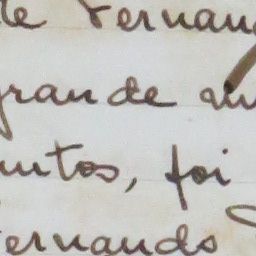 te Fernan
grande m
untos, foi
Fernando